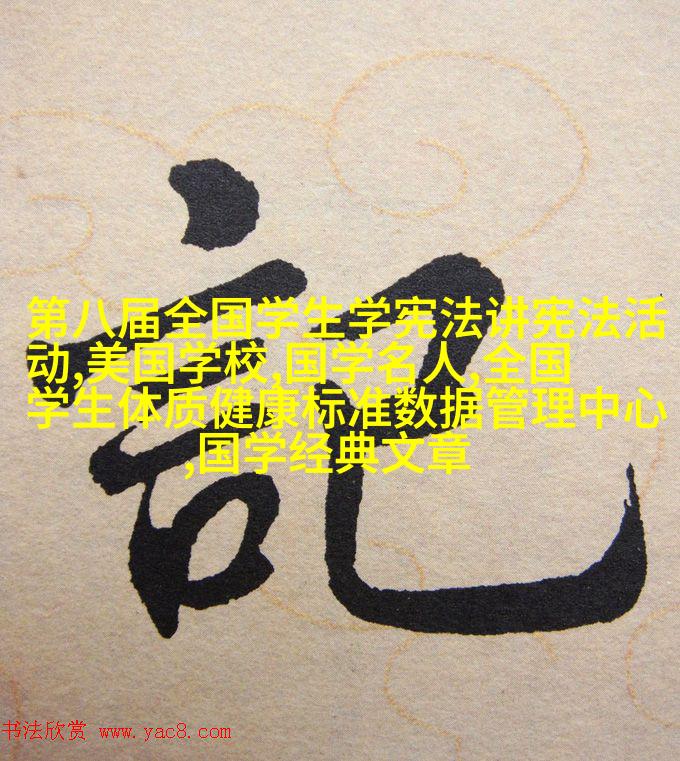 記
第八届全国学生学宪法讲宪法活
动,美国学校,国学名人,全国
学生体质健康标准数据管理中心
,国学经典文章
书法欣赏 www.yac8.com